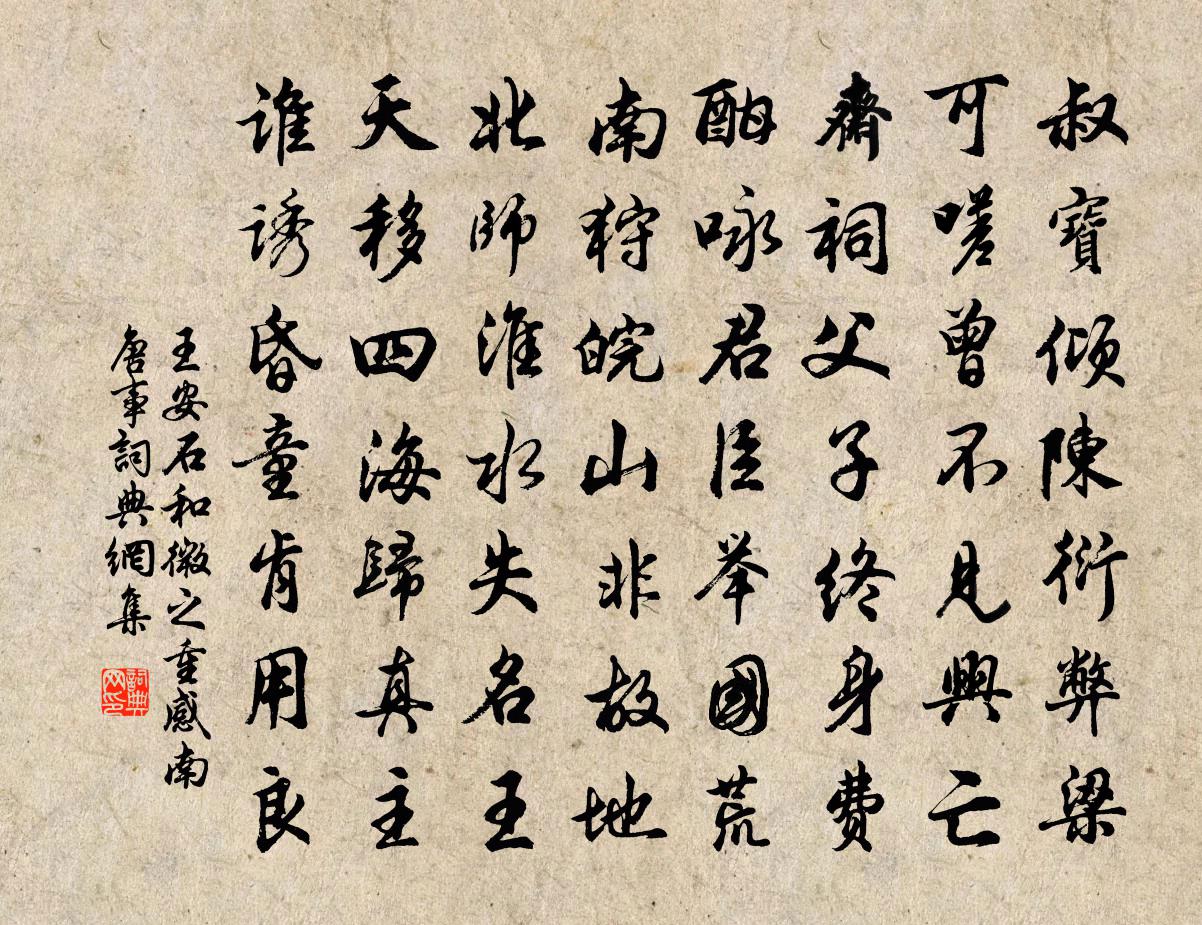 叔寶傾陳衍弊梁
可嗟曾不見興亡
齋祠父子終身費
酣咏君臣举國荒
南狩皖山非故地
北師淮水失名王
天移四海歸真主
誰誘昏童肯用良
王安石和微之重感南
唐事詞典網集
詞典网印